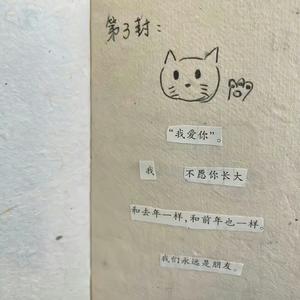 第3封：
“我爱你”。
我 不愿你长大
和去年一样，和前年也一样。
我们永远是朋友。